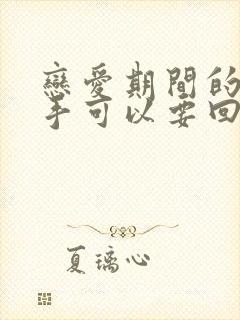 戀愛期間的
手可以要回
夏璃心